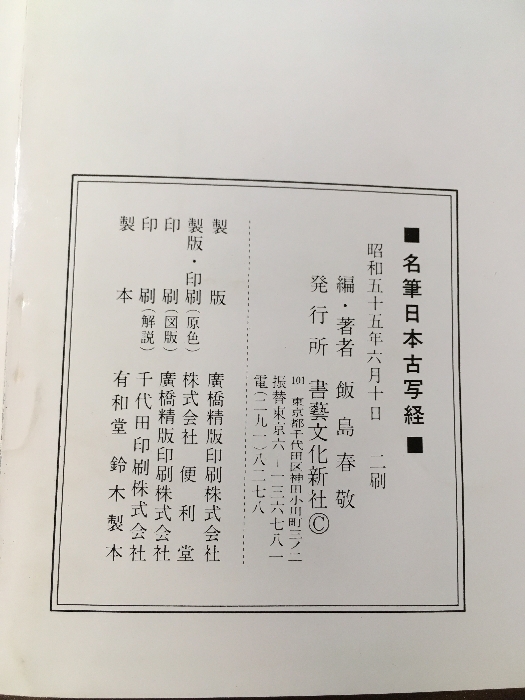 ■名筆日本古写経■
昭和五十五年六月十日 二刷
編・著者 飯島春敬
発行所 書藝文化新社©
101 東京都千代田区神田小川町三ノ二
振替東京六-一三六七八一
電(二九一)八二七八
製版 廣橋精版印刷株式会社
製版・印刷(原色) 株式会社 便利堂
印刷(図版) 廣橋精版印刷株式会社
印刷(解説) 千代田印刷株式会社
製本 有和堂 鈴木製本